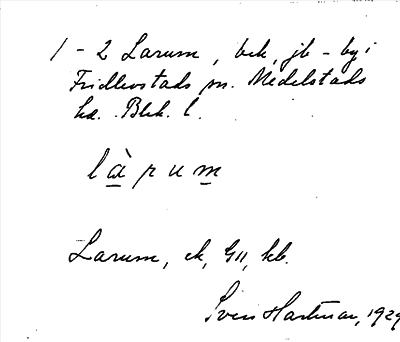 1-2 Larum, bek, jb-by i
Fridlevstads sn. Medelstads
hd. Blek. l.
làrum
Larum, ek, G11, kb.
Sven Hartman, 1929